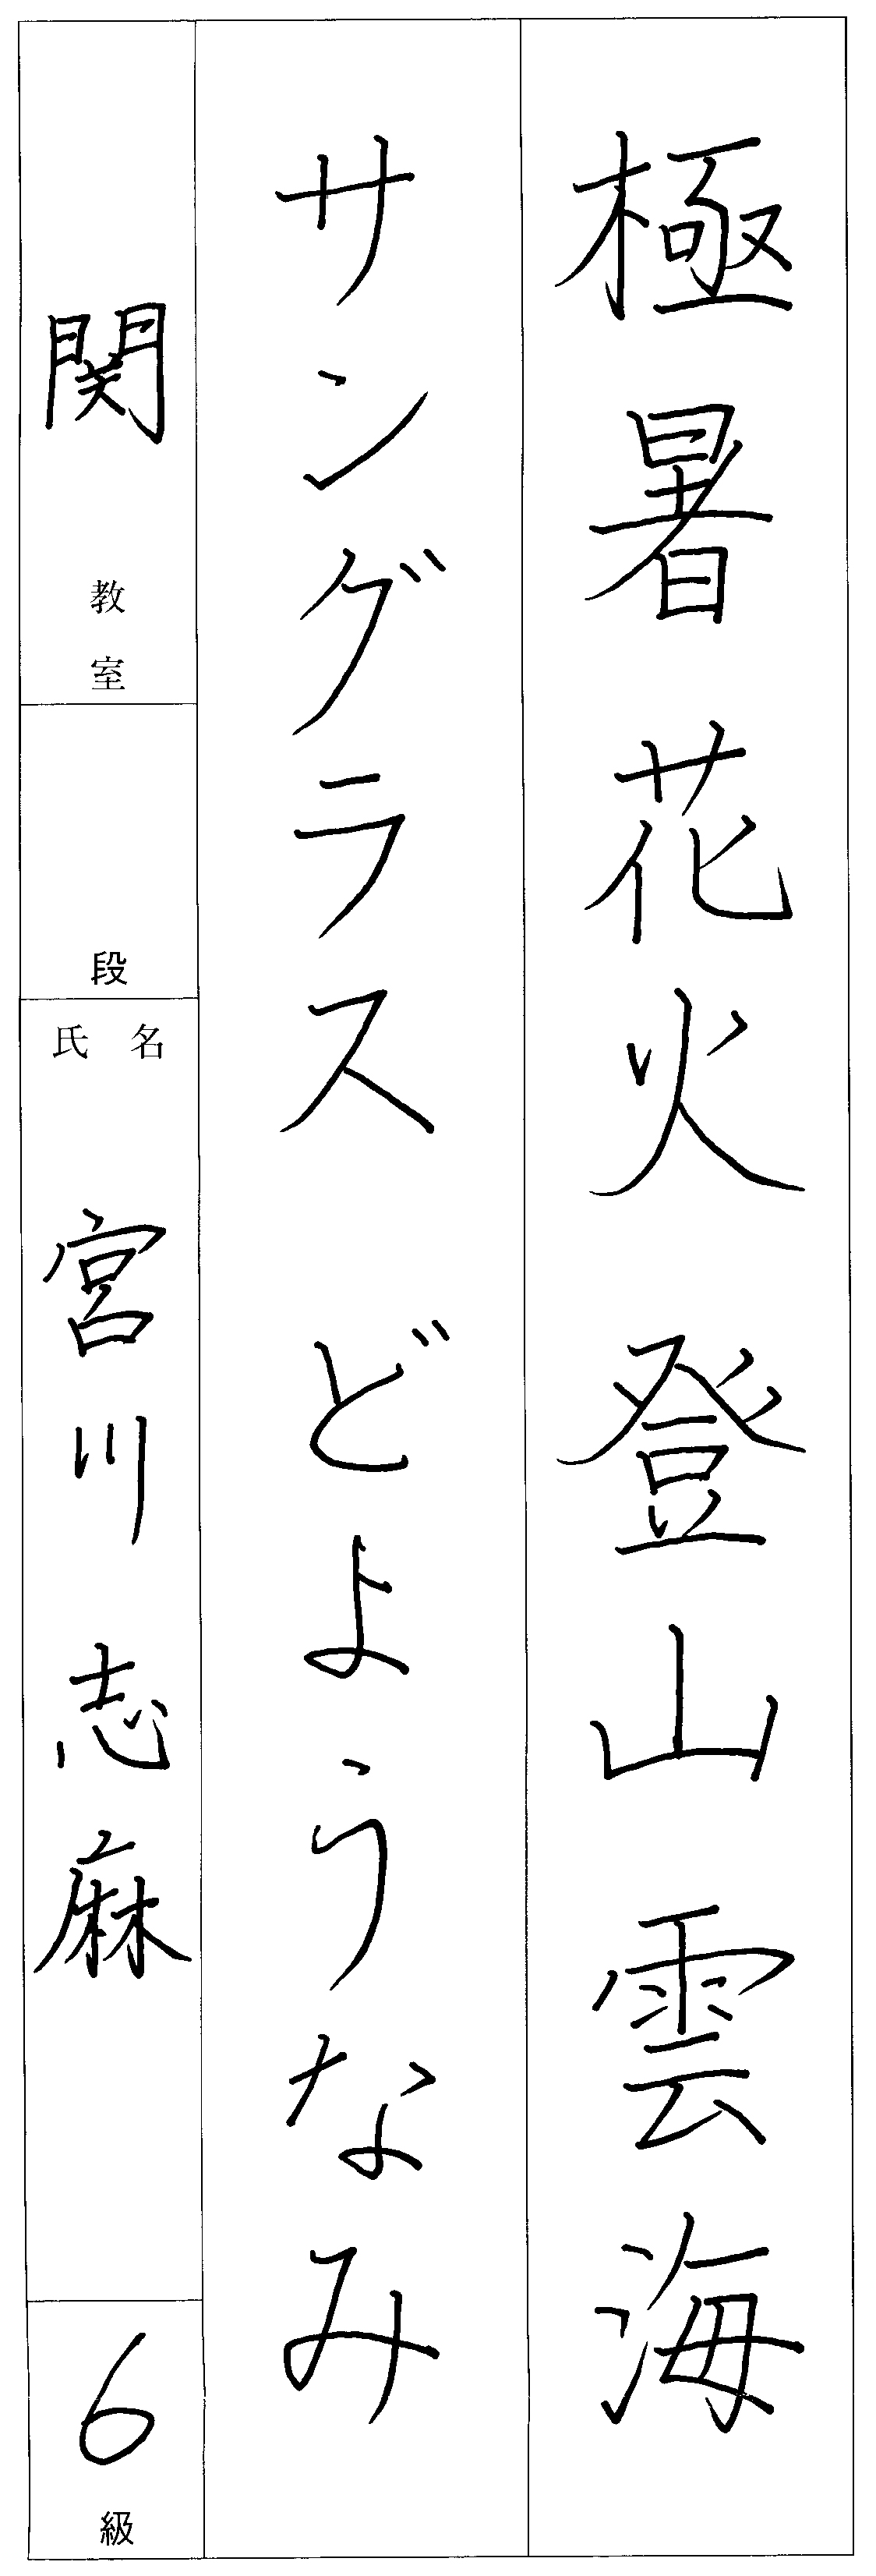 極暑花火登山雲海
サングラスどようなみ
関教室
段
氏名
宮川志麻
6級